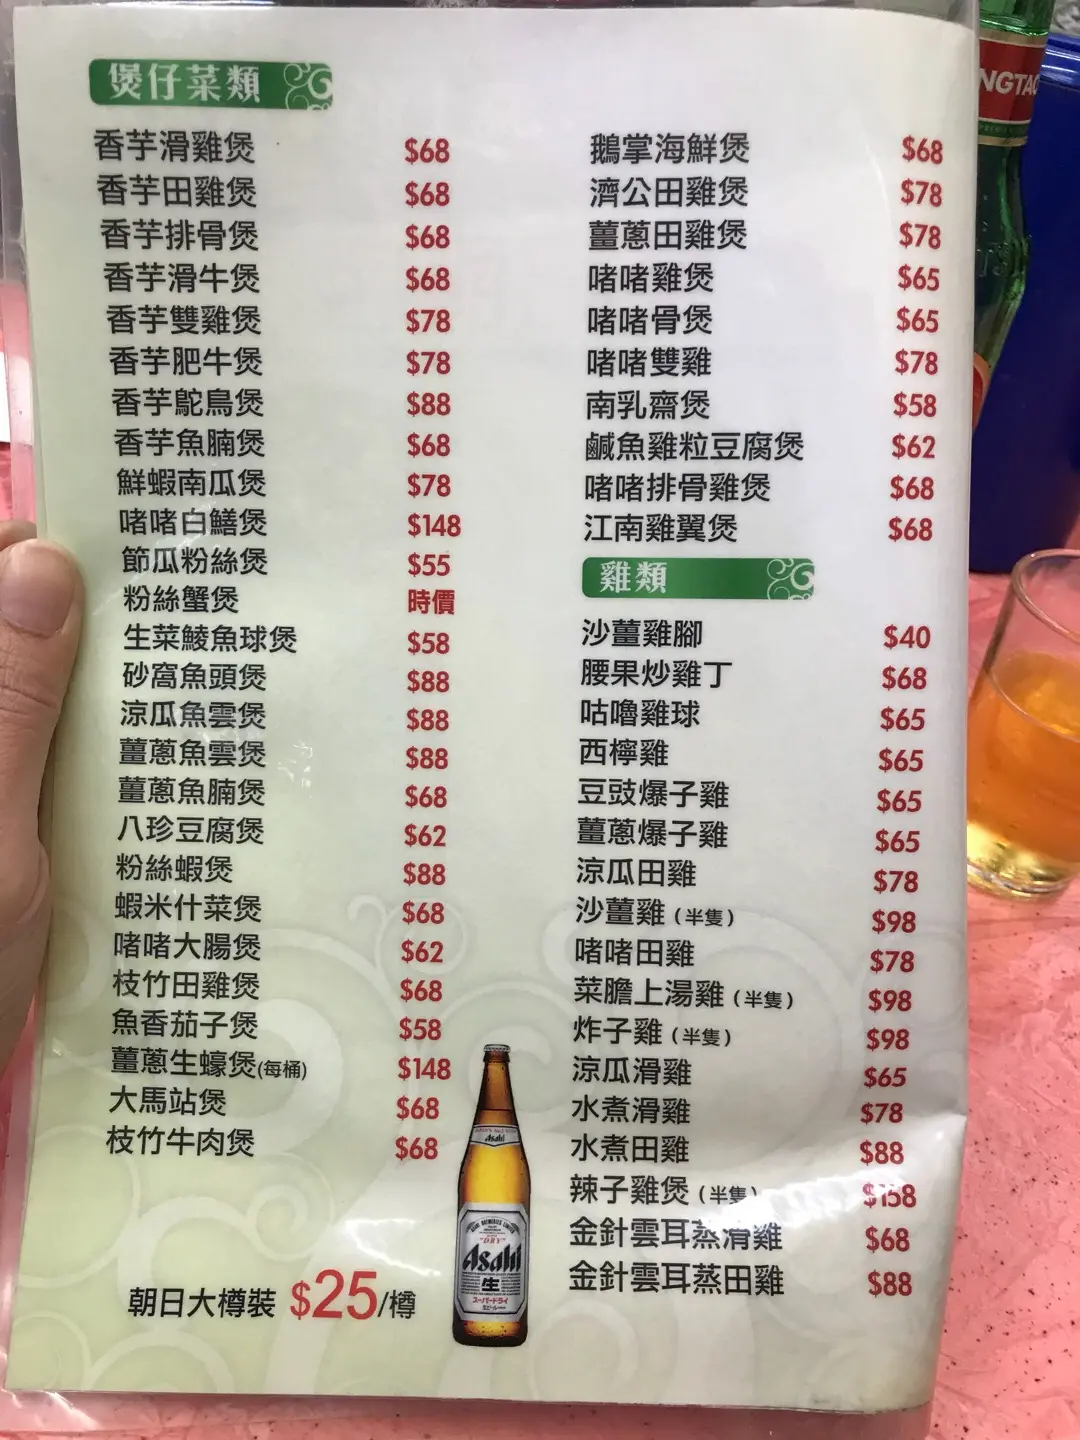 煲仔菜類
香芋滑雞煲 $68
香芋田雞煲 $68
香芋排骨煲 $68
香芋滑牛煲 $68
香芋雙雞煲 $78
香芋肥牛煲 $78
香芋鴕鳥煲 $88
香芋魚腩煲 $68
鮮蝦南瓜煲 $78
啫啫白鱔煲 $148
節瓜粉絲煲 $55
粉絲蟹煲 時價
生菜鯪魚球煲 $58
砂窩魚頭煲 $88
涼瓜魚雲煲 $88
薑蔥魚雲煲 $88
薑蔥魚腩煲 $68
八珍豆腐煲 $62
粉絲蝦煲 $88
蝦米什菜煲 $68
啫啫大腸煲 $62
枝竹田雞煲 $68
魚香茄子煲 $58
薑蔥生蠔煲(每桶) $148
大馬站煲 $68
枝竹牛肉煲 $68
朝日大樽裝 $25/樽
鵝掌海鮮煲 $68
濟公田雞煲 $78
薑蔥田雞煲 $78
啫啫雞煲 $65
啫啫骨煲 $65
啫啫雙雞 $78
南乳齋煲 $58
鹹魚雞粒豆腐煲 $62
啫啫排骨雞煲 $68
江南雞翼煲 $68
雞類
沙薑雞腳 $40
腰果炒雞丁 $68
咕嚕雞球 $65
西檸雞 $65
豆豉爆子雞 $65
薑蔥爆子雞 $65
涼瓜田雞 $78
沙薑雞（半隻） $98
啫啫田雞 $78
菜膽上湯雞（半隻） $98
炸子雞（半隻） $98
涼瓜滑雞 $65
水煮滑雞 $78
水煮田雞 $88
辣子雞煲（半隻） $158
金針雲耳蒸滑雞 $68
金針雲耳蒸田雞 $88
Asahi
"DRY"
Asahi
生
スーパードライ
NGTAO